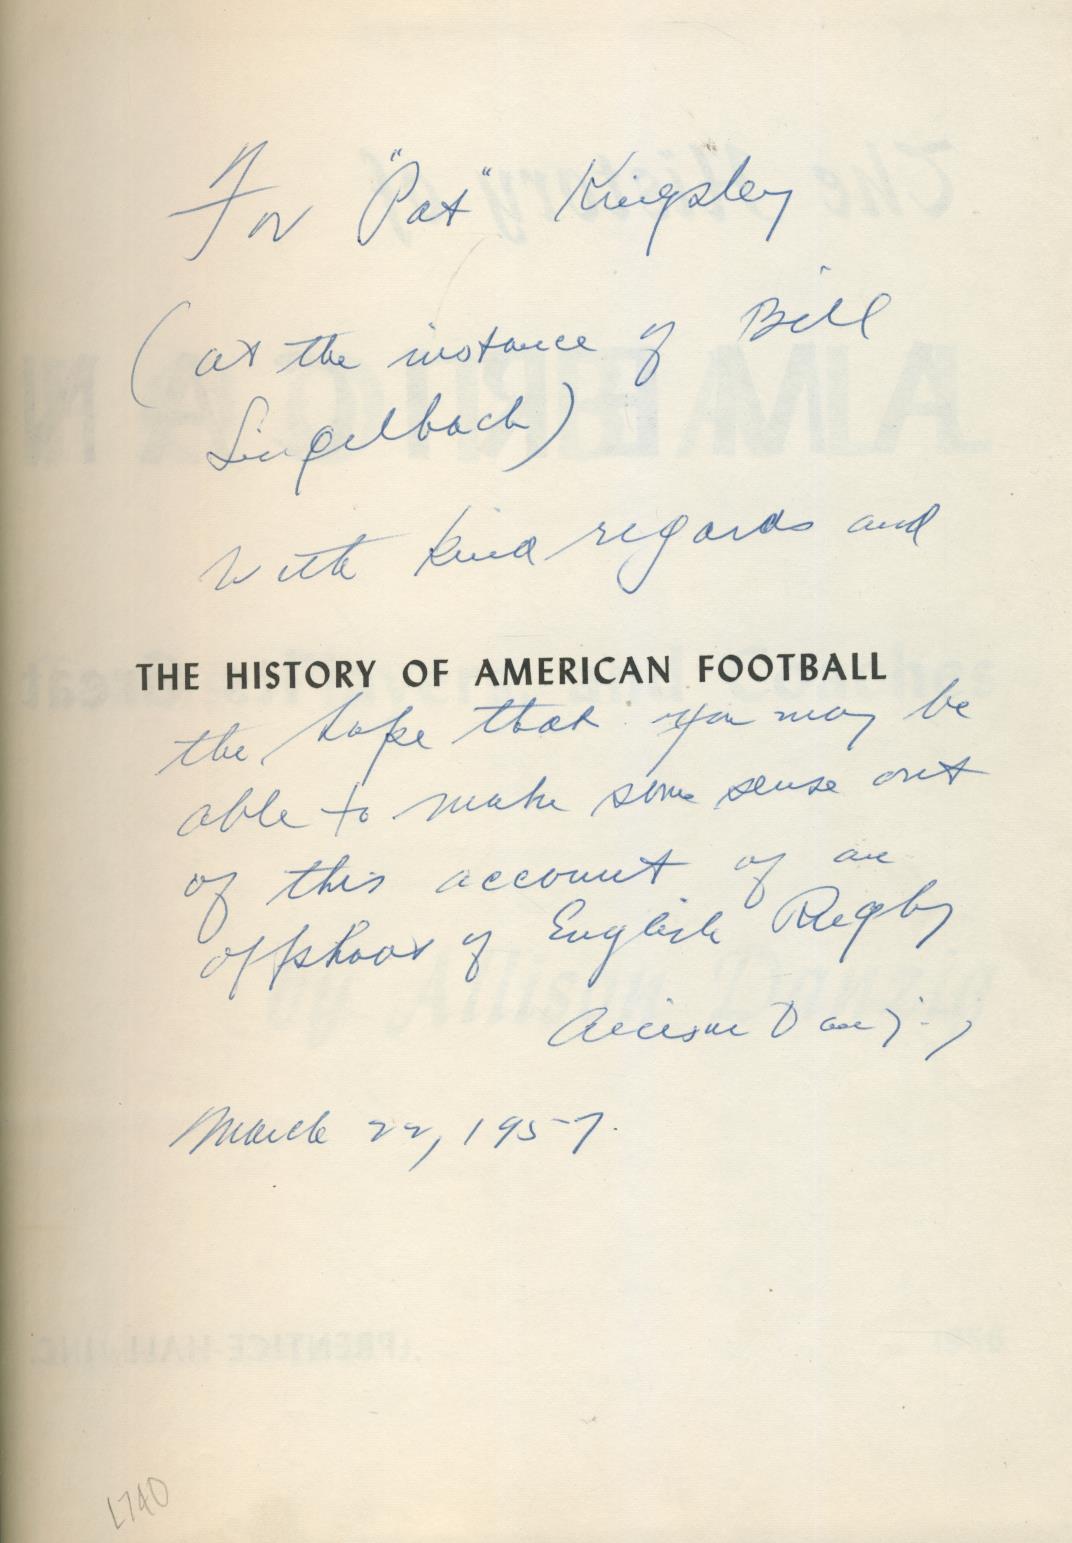 For "Pat" Kingsley
(at the instance of Bill
Lingelbach)
with kind regards and
THE HISTORY OF AMERICAN FOOTBALL
the hope that you may be
able to make some sense out
of this account of an
offshoot of English Rugby
Allison Danzig
March 22, 1957.
L740